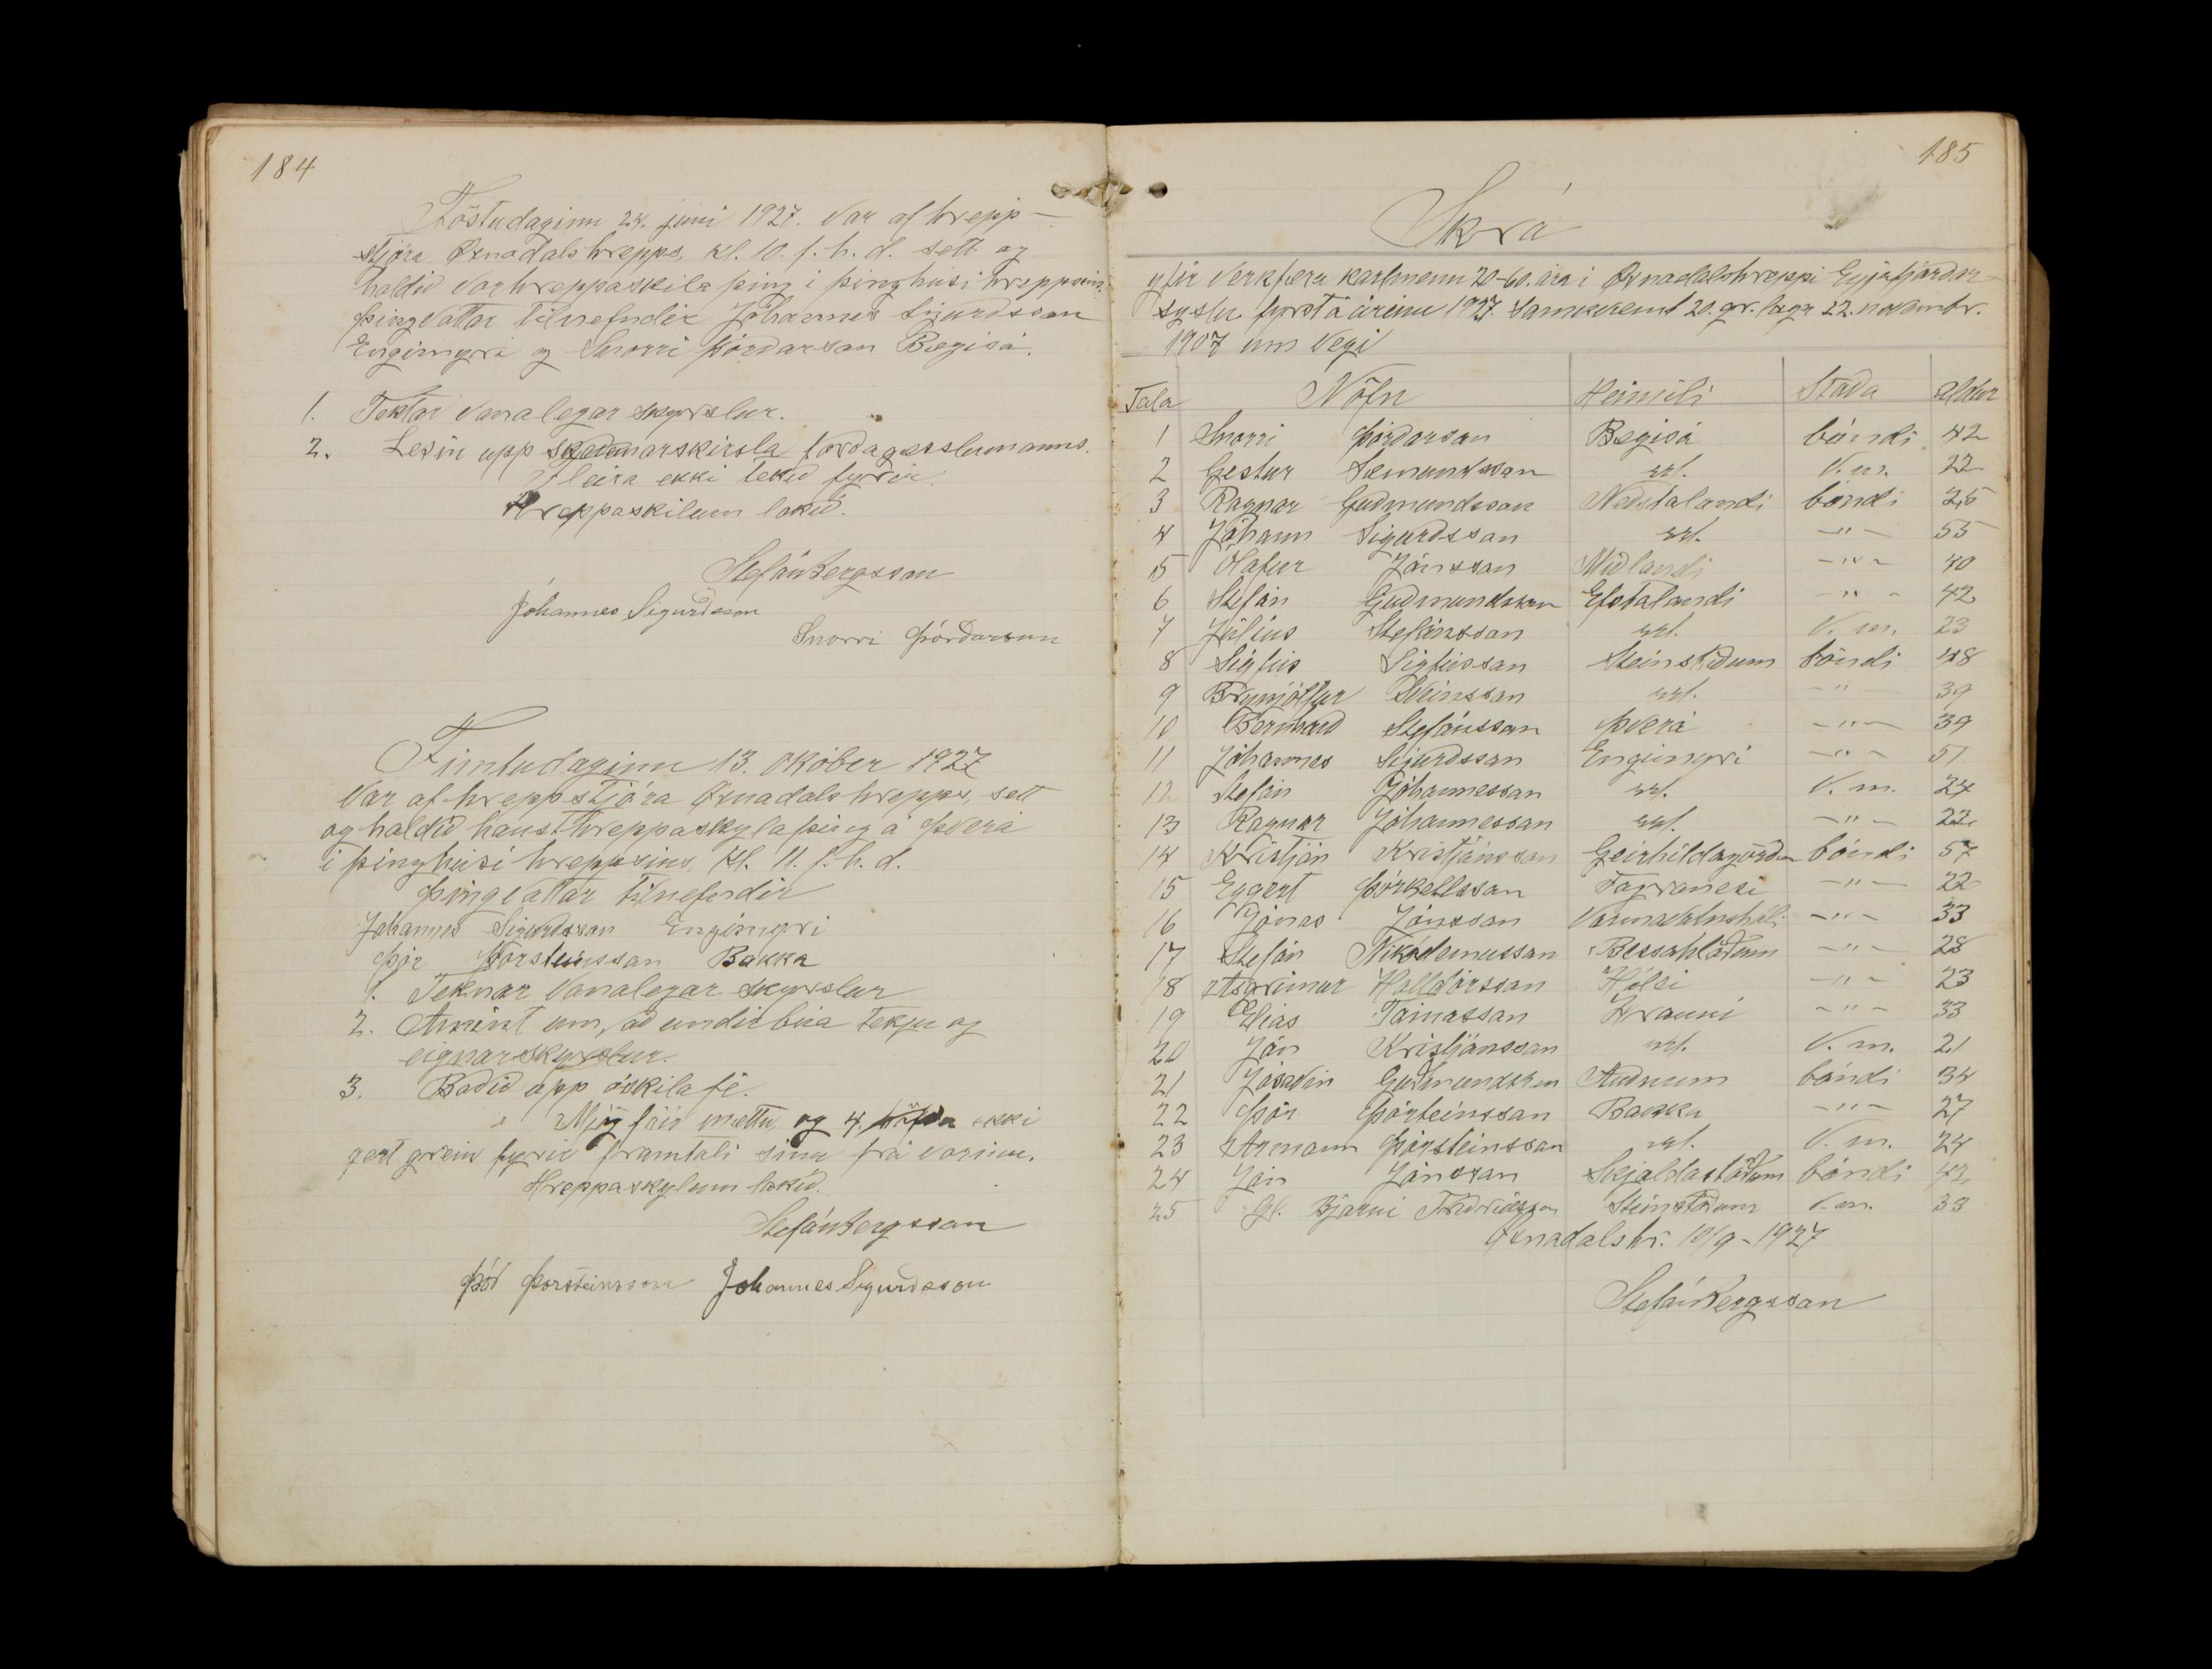 184
Föstudaginn 24. juni 1927. Var af hrepp-
stjóra Öxnadalshrepps, kl. 10. f. h. d. sett og
haldið Vorhreppaskilaþing i þinghúsi hreppsins.
Þingvottar tilnefndir Jóhannes Sigurdssan
Engimyri og Snorri Þórdarsan Bægisá.
1. Teknar Vanalegar skyrslur.
2. Lesin upp fordagæslumanns.
Fleira ekki tekið fyrir.
Hreppaskilum lokið.
Stefán Bergssan
Jóhannes Sigurdsson
Snorri Þórdarson
Fimtudaginn 13. október 1927
Var af hreppstjóra Öxnadalshrepps, sett
og haldið hausthreppaskylaþing á Þverá
i þinghúsi hreppsins, kl. 11. f. h. d.
Þingvottar tilnefndir
Jóhannes Sigurdssan Engimyri
Þór Þorsteinssan Bakka
1. Teknar Vanalegar skyrslur
2. Áminnt um, að undirbúa tekju og
eignarskyrslur.
3. Badið upp óskilafé.
Mjög fáir mættu og 4. ekki
gert grein fyrir framtali sinu frá vorinu.
Hreppaskylum lokið.
Stefán Bergssan
Þór Þorsteinsson Jóhannes Sigurdsson
185
Skrá
yfir Verkfæra karlmenn 20-60. ára i Öxnadalshreppi Eyjafjardar-
syslu fyrst á árinu 1927. Samkvæmt 20. gr. laga 22. november.
1907 um Vegi
Tala Nöfn Heimili Stada aldur
1 Snorri Þórdarsan Bægisá bóndi 42
2 Gestur Sæmundssan V. m. 22
3 Ragnar Gudmundssan Neðstalandi bóndi 25
4 Jóhann Sigurdssan -"- 55
5 Ólafur Jónssan Midlandi -"- 40
6 Stefán Gudmundssan Efstalandi -"- 42
7 Júlíus Stefánssan V. m. 23
8 Sigfús Sigfússan Steinstdum bóndi 48
9 Brynjólfur Sveinssan -" 39
10 Bernhard Stefánssan Þverá -"- 39
11 Jóhannes Sigurdssan Engimyri -"- 51
12 Stefán Jóhannessan V. m. 24
13 Ragnar Jóhannessan -"- 22
14 Kristján Kristjánssan Geirhildagördum bóndi 57
15 Eggert Þórkellssan Fagranesi -"- 22
16 Jónas Jónssan Varmavatnshól. -"- 33
17 Stefán Nikódemussan Bessahlöðum -"- 28
18 Asgrimur Halldórssan Hólsi -"- 23
19 Elias Tómassan Hrauni -"- 33
20 Jón Kristjánssan V. m. 21
21 Jósavin Gudmundssan Audnum bóndi 34
22 Þór Þórteinssan Bakka -"- 27
23 Armann Þórsteinssan V. m. 24
24 Jón Jónssan Skjaldastödum bóndi 42
25 Bjarni Steinstdum V. m. 33
Öxnadalshr. 10/9-1927
Stefán Bergssan